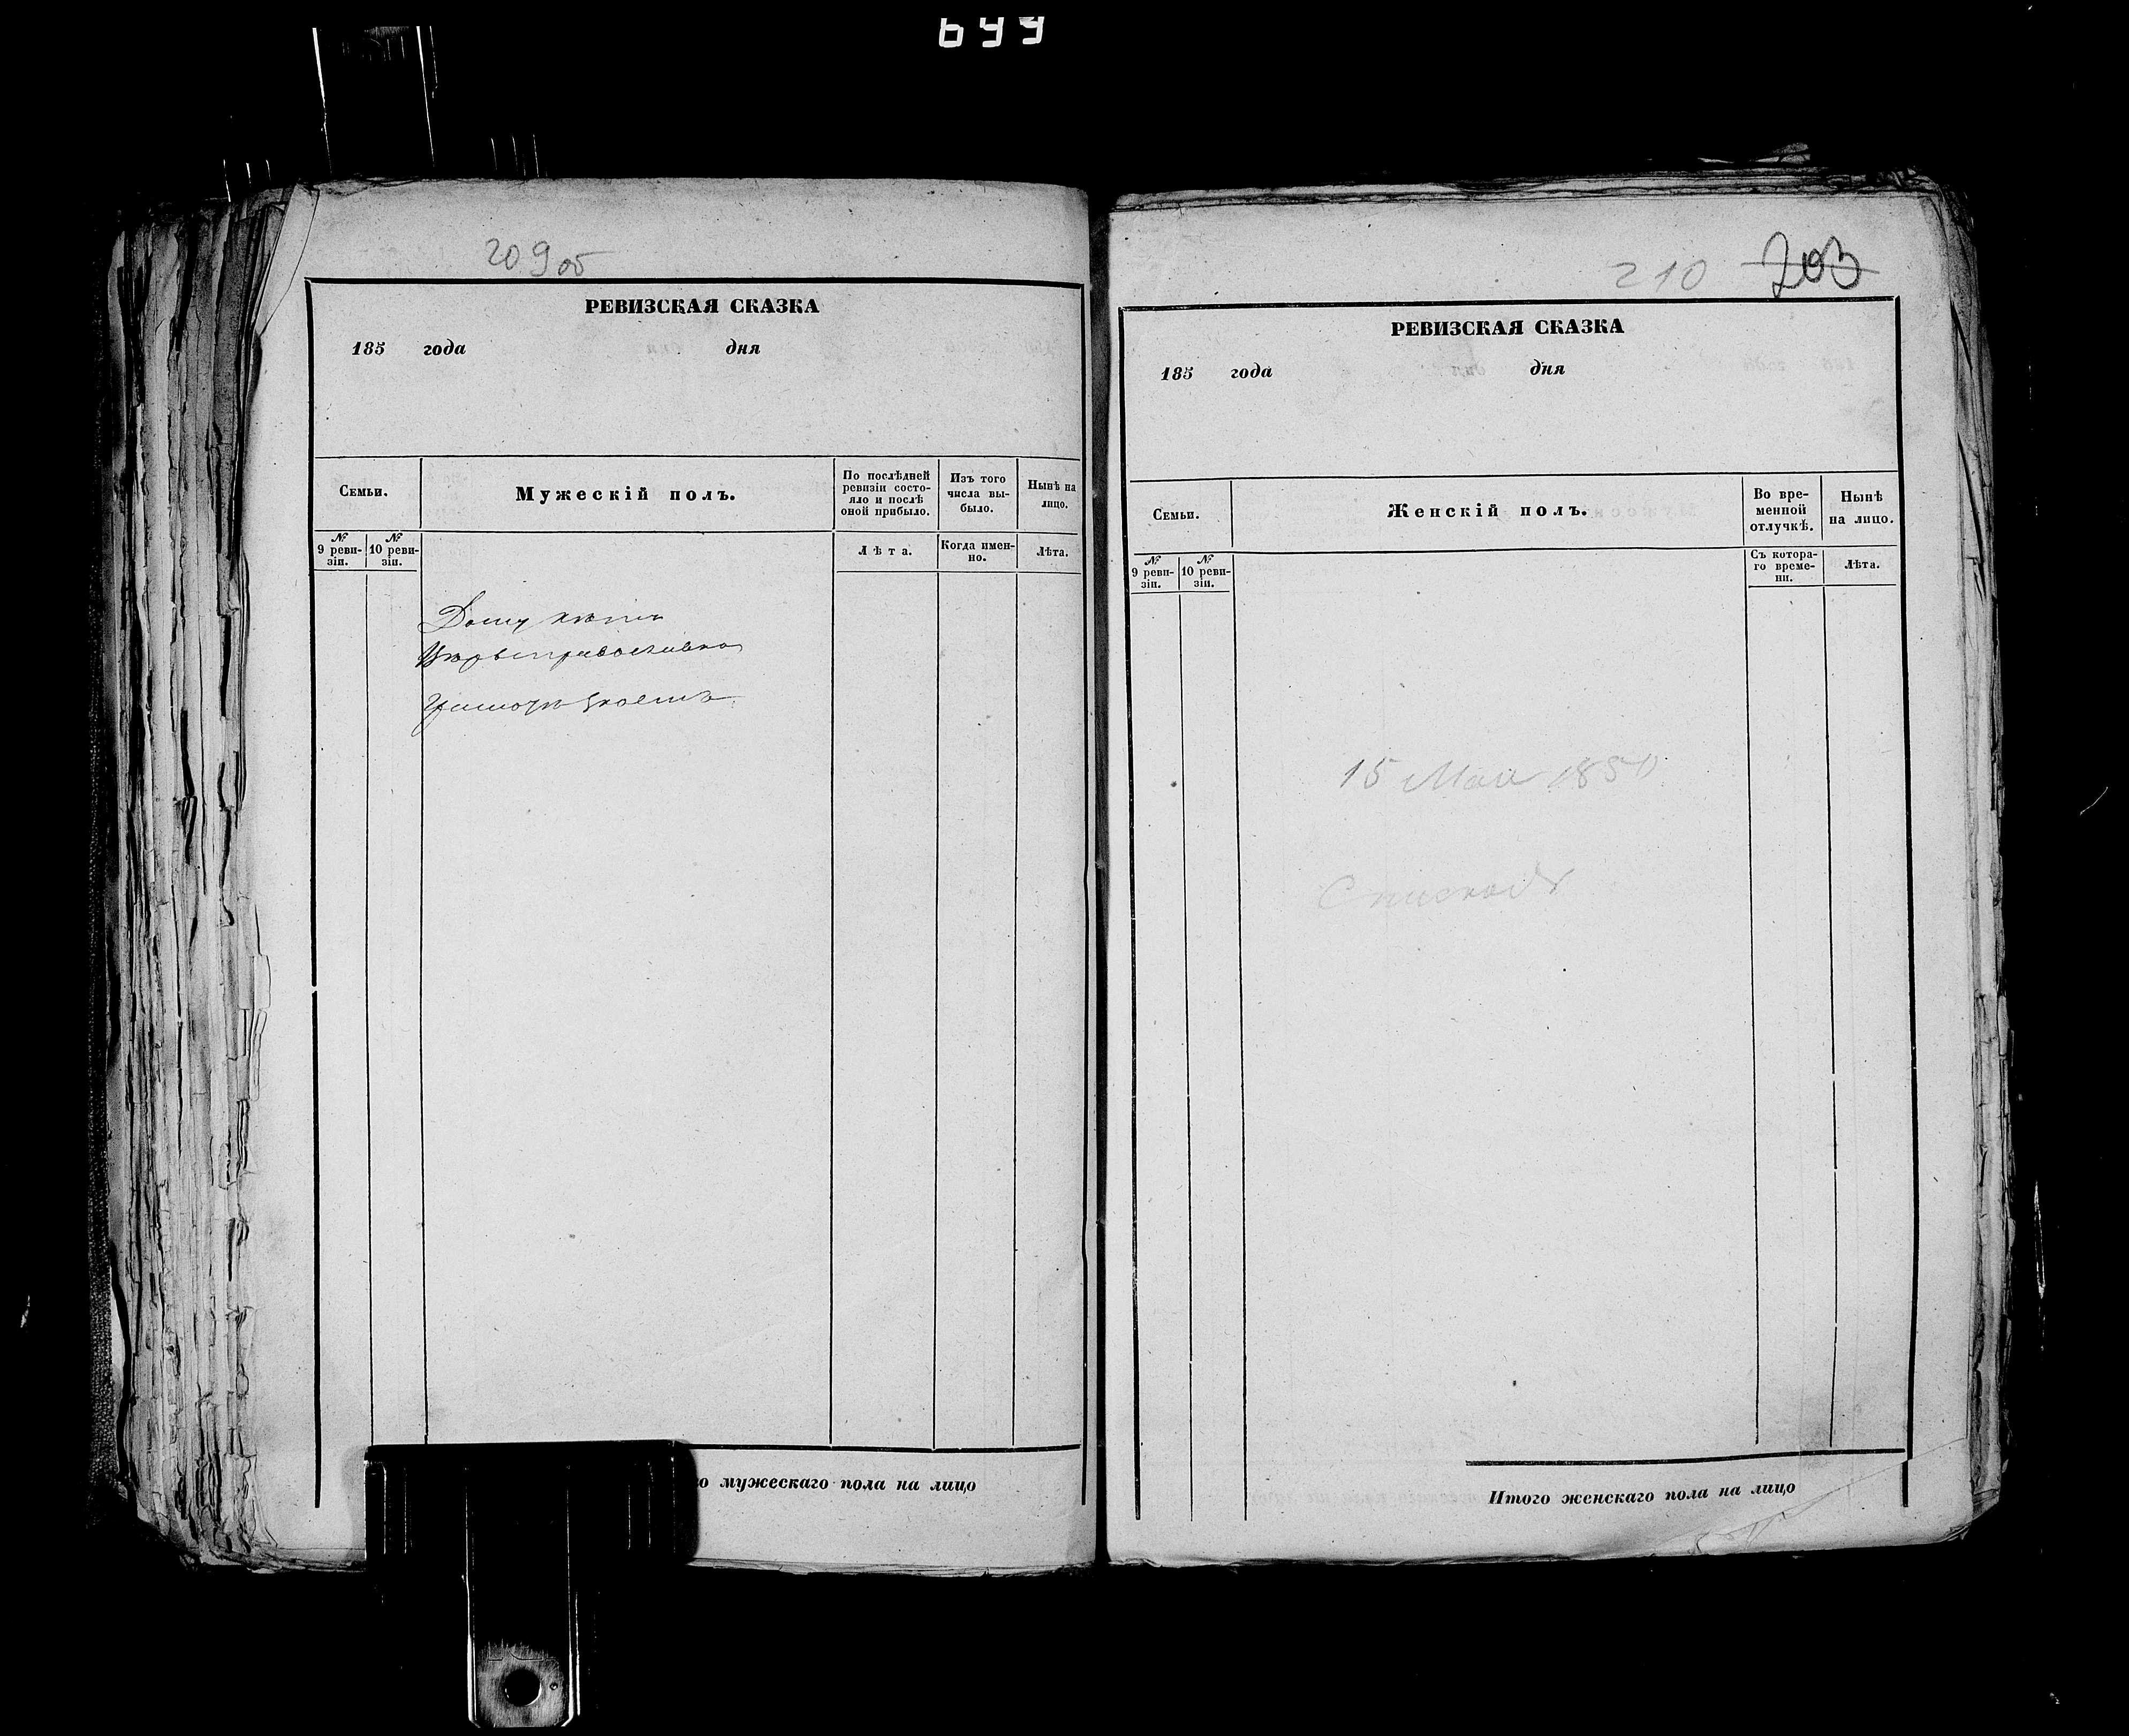 699
209об
РЕВИЗСКАЯ СКАЗКА
185 года дня
Семьи.
Мужескій полъ.
По послѣдней ревизіи состояло и послѣ оной прибыло.
Изъ того числа выбыло.
Нынѣ на лицо.
№ 9 ревизіи.
№ 10 ревизіи.
Лѣта.
Когда именно.
Лѣта.
го мужескаго пола на лицо
210 203
РЕВИЗСКАЯ СКАЗКА
185 года дня
Семьи.
Женскій полъ.
Во временной отлучкѣ.
Нынѣ на лицо.
№ 9 ревизіи.
№ 10 ревизіи.
Съ котораго времени.
Лѣта.
15 Мая 1850
Итого женскаго пола на лицо